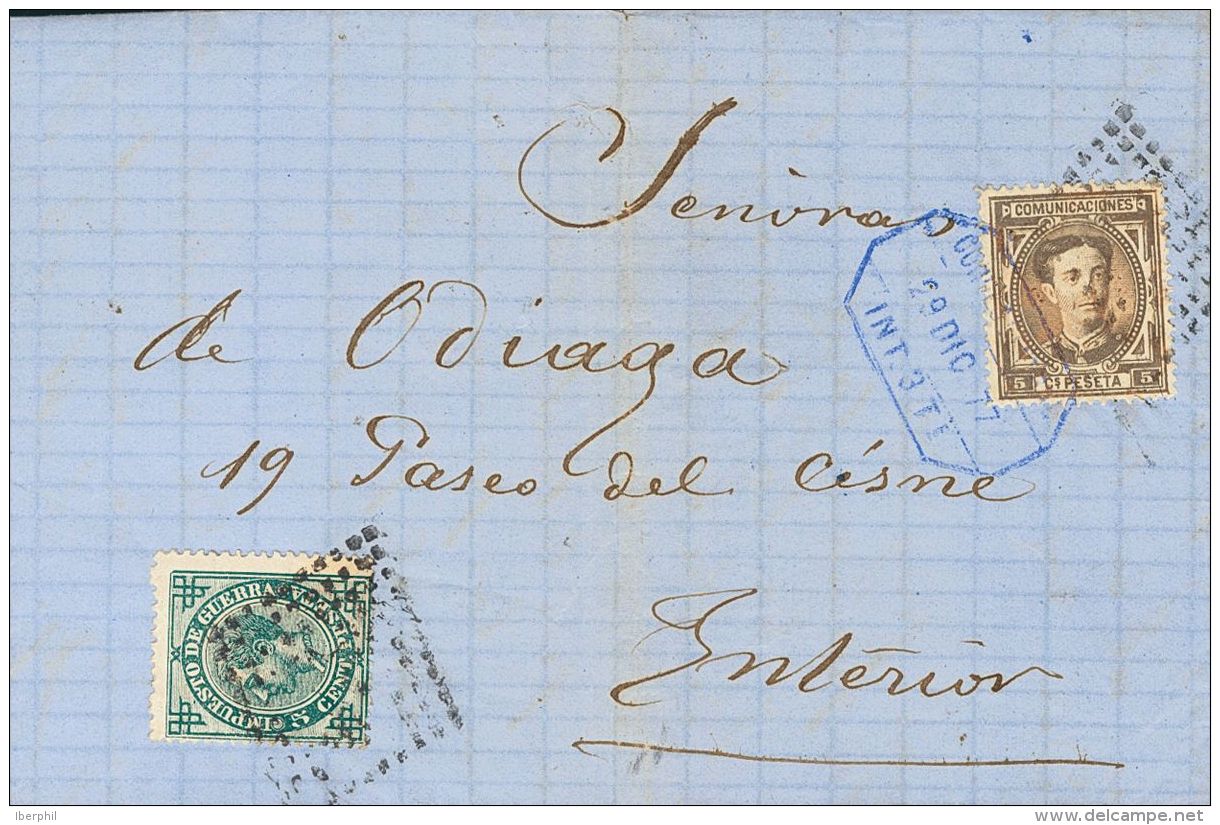 Señora
COMUNICACIONES
5 Cs PESETA 5
29 DIC 77
INT. 3 T
de Odiaga
19 Paseo del Cisne
IMPUESTO DE GUERRA
5 CENT. PESETA
Interior
Iberphil
delcampe.net